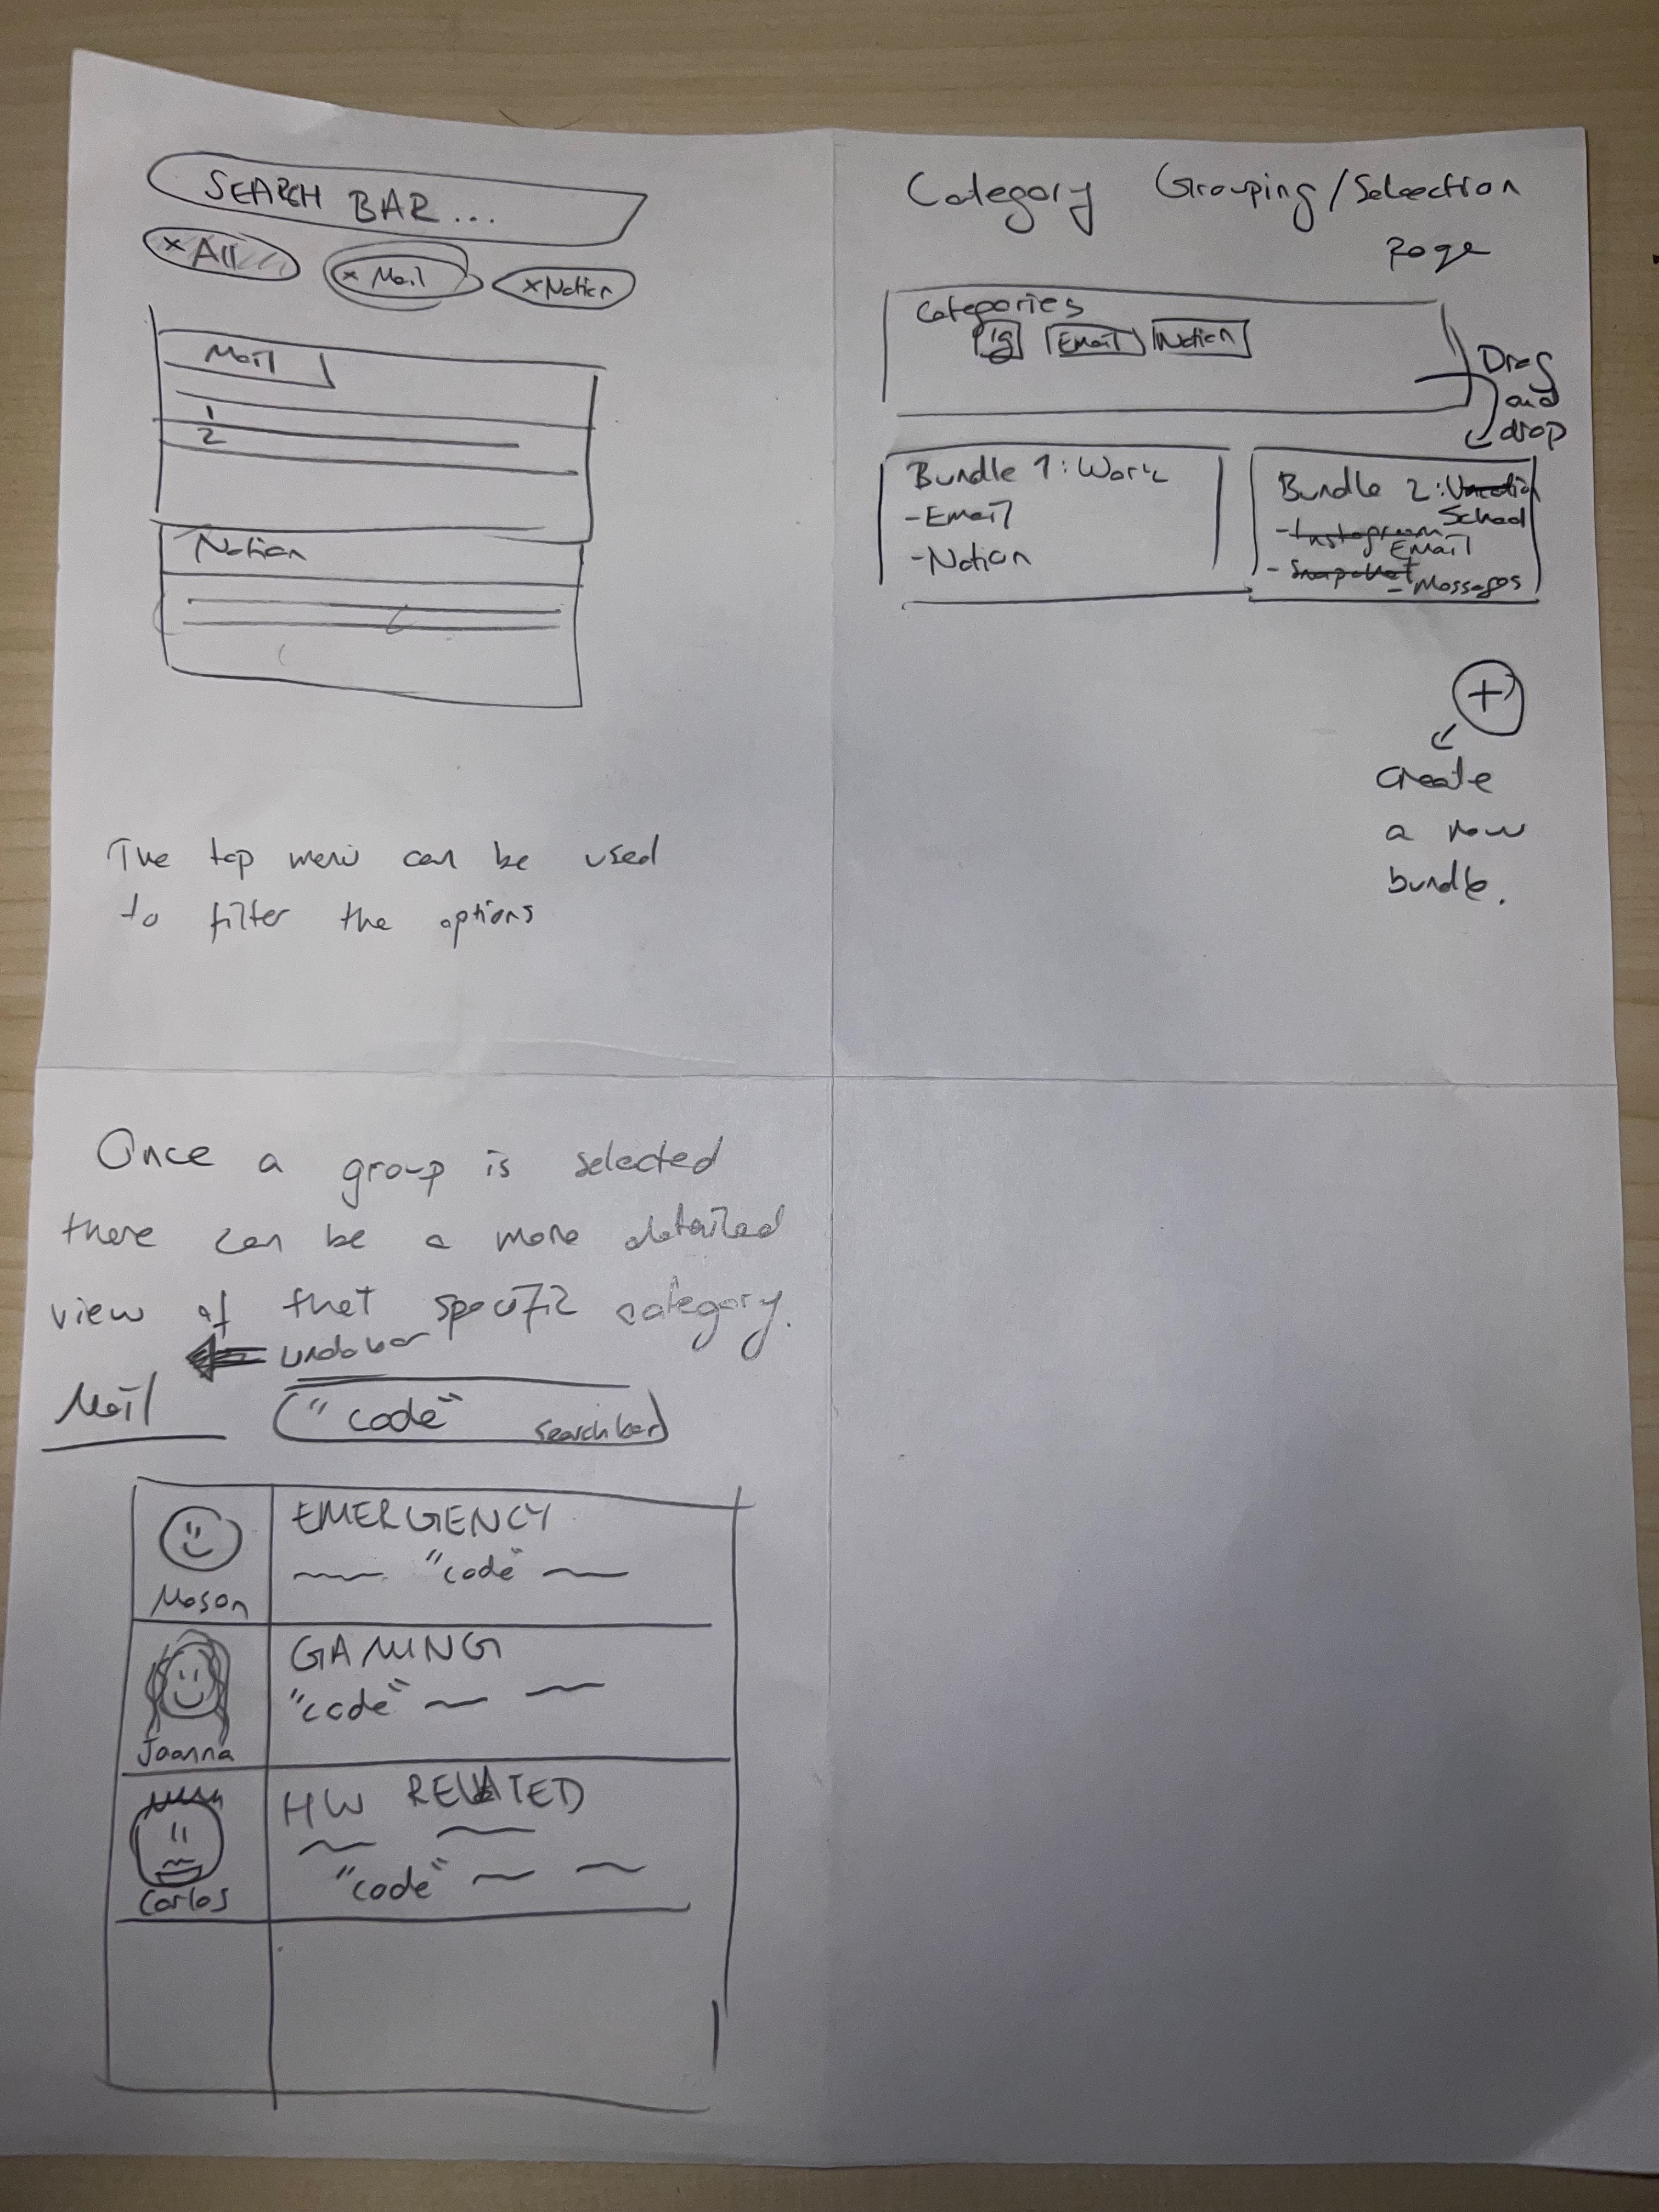 SEARCH BAR...
x All
x Mail
x Notion
Mail
1
2
Notion
The top menu can be used
to filter the options
Category Grouping/Selection
Page
Categories
ig Email Notion
Drag
and
drop
Bundle 1: Work
- Email
- Notion
Bundle 2: Vacation
School
- Instagram
Email
- Snapchat
- Messages
+
create
a new
bundle.
Once a group is selected
there can be a more detailed
view of that specific category.
undo bar
Mail
"code" search bar
EMERGENCY
"code"
Mason
GAMING
"code"
Joanna
HW RELATED
"code"
Carlos